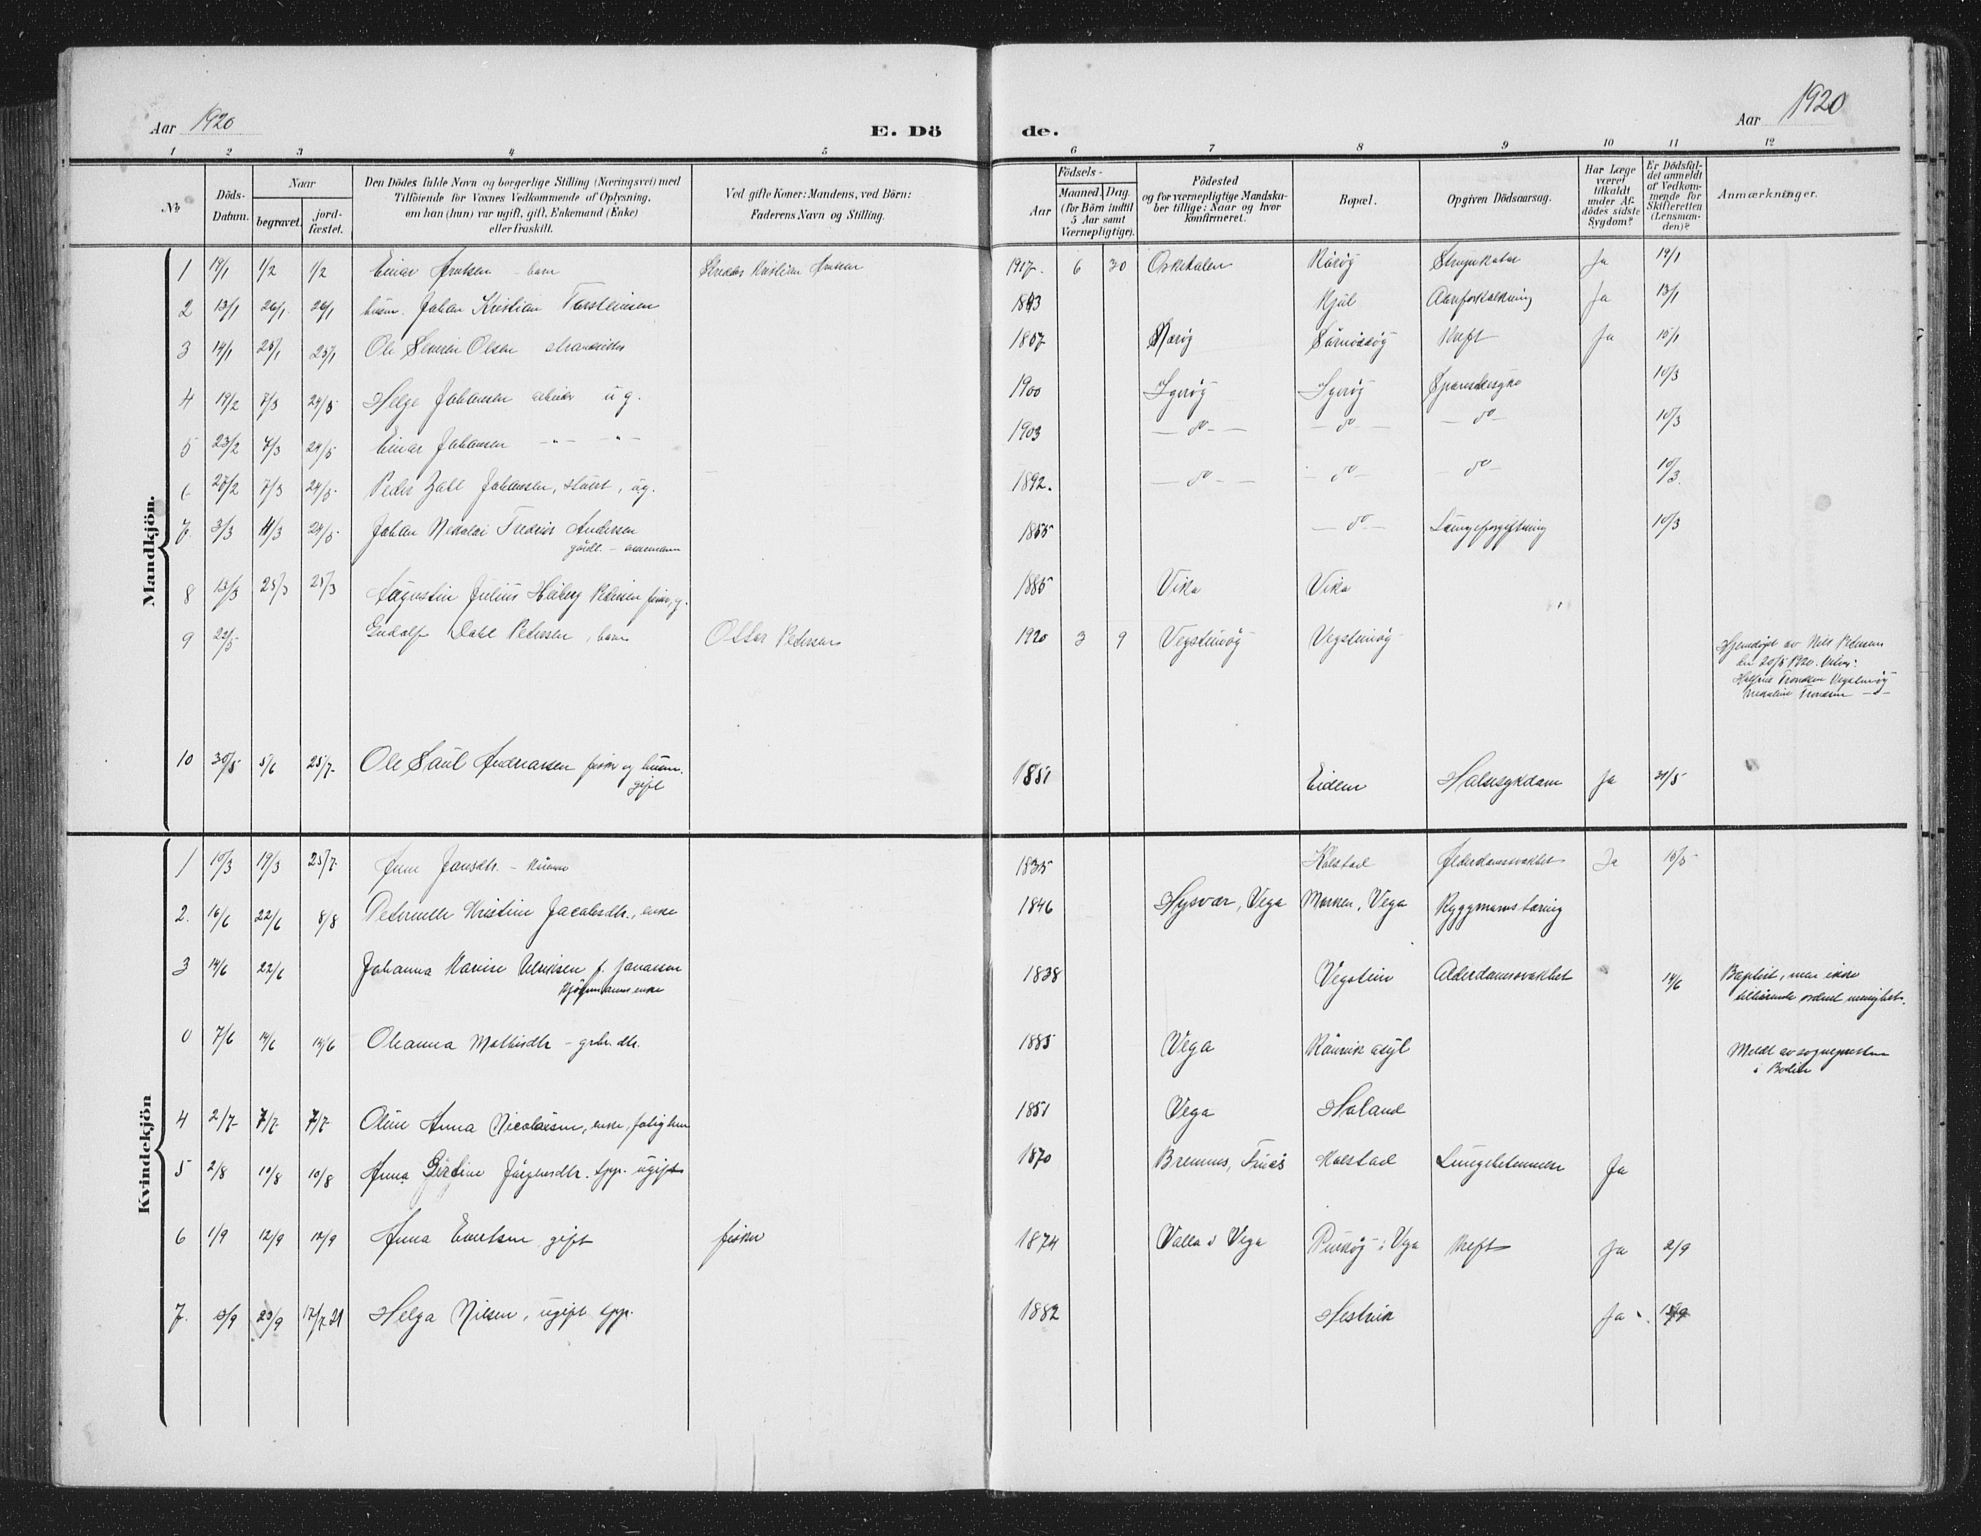 Aar 1920
E. Dö
de.
Aar 1920
1 2 3 4 5 6 7 8 9 10 11 12
No
Döds-Datum.
Naar
begravet.
jord-fæstet.
Den Dödes fulde Navn og borgerlige Stilling (Næringsvei) med
Tilföiende for Voxnes Vedkommende af Oplysning,
om han (hun) var ugift, gift, Enkemand (Enke)
eller fraskilt.
Ved gifte Koner: Mandens, ved Börn:
Faderens Navn og Stilling.
Födsels-
Aar
Maaned.
Dag.
(for Börn indtil
5 Aar samt
Værnepligtige).
Födested
og for værnepligtige Mandska-
ber tillige: Naar og hvor
konfirmeret.
Bopæl.
Opgiven Dödsaarsag.
Har Læge
været
tilkaldt
under Af-
dödes sidste
Sygdom?
Er Dödsfal-
det anmeldt
af Vedkom-
mende for
Skifteretten
(Lensman-
den)?
Anmærkninger.
Mandkjön.
1 19/1 1/2 1/2 Einar Arntsen - barn Skredder Kristian Arntsen 1917. 6 30 Orkedalen Rörög Strupekatar Ja 19/1
2 13/1 26/1 26/1 husm. Johan Kristian Torsteinsen 1843 Kjul Aareforkalkning Ja 13/1
3 14/1 25/1 25/1 Ole Severin Olsen strandsidder 1857 Kræft Ja 15/1
4 19/2 7/3 24/5 Helge Johansen arbeider ug. 1900 Igerög Igerög Spanskesyke 10/3
5 23/2 7/3 24/5 Einar Johansen -"- -"- 1903 - do - - do - - do - 10/3
6 25/2 7/3 24/5 Peder Dahl Johansen, stuert, ug. 1892. - do - - do - - do - 10/3.
7 3/3 11/3 24/5 Johan Nikolai Fredrik Andersen 1855 - do - Lungeforgiftning 10/3
gårdb. - enkemann
8 13/3 25/3 25/3 Augustin Julius Heiberg Pedersen fisker, g. 1885 Vika Vika
9 22/5 Gudolf Dahl Petersen, barn Ottar Pedersen 1920 3 9 Vegsteinög Vegsteinög Hjemdöpt av Nils Petersen
den 20/5 1920. Vidner:
Tronsen Vegsteinög
Tronsen -"-
10 30/5 5/6 25/7 Ole Paul Andreassen fisker og husm. gift 1851 Eidem Halssygdom Ja 31/5
Kvindekjön
1 10/3 19/3 25/7 Anne Jansdtr. - 1835 Kolstad Alderdomssvakhet Ja 15/5
2. 16/6 22/6 8/8 Petornelle Kristine Jacobsdtr., enke 1846 Hysvær, Vega Marken, Vega Ryggmarvstæring
3 14/6 22/6 Johanna Marie Ulriksen f. Jonassen 1838 Vegstein Alderdomssvakhet 14/6 Baptist, men ikke
Kjöbmannsenke
tilhörende ordnet menighet.
0 7/6 14/6 14/6 Oleanna Mathisdtr - grbr. dtr. 1885 Vega Rönvik asyl Meldt av sogneprsten
i Bodin
4 2/7 7/7 7/7 Oline Anna Nicolaisen, enke, fattiglem 1851 Vega Holand
5 2/8 10/8 10/8 Anna Gjertine Jörgensdtr. tpp. ugift 1870 Bremnes, Finås Kolstad Lungebetennelse Ja
6 1/9 12/9 12/9 Anna Evertsen gift fisker 1874 Valla i Vega Purkög i Vega Kreft Ja 2/9
7. 13/9 23/9 17/7 21 Helga Nilsen, ugift tpp. 1882 Hestvik Ja